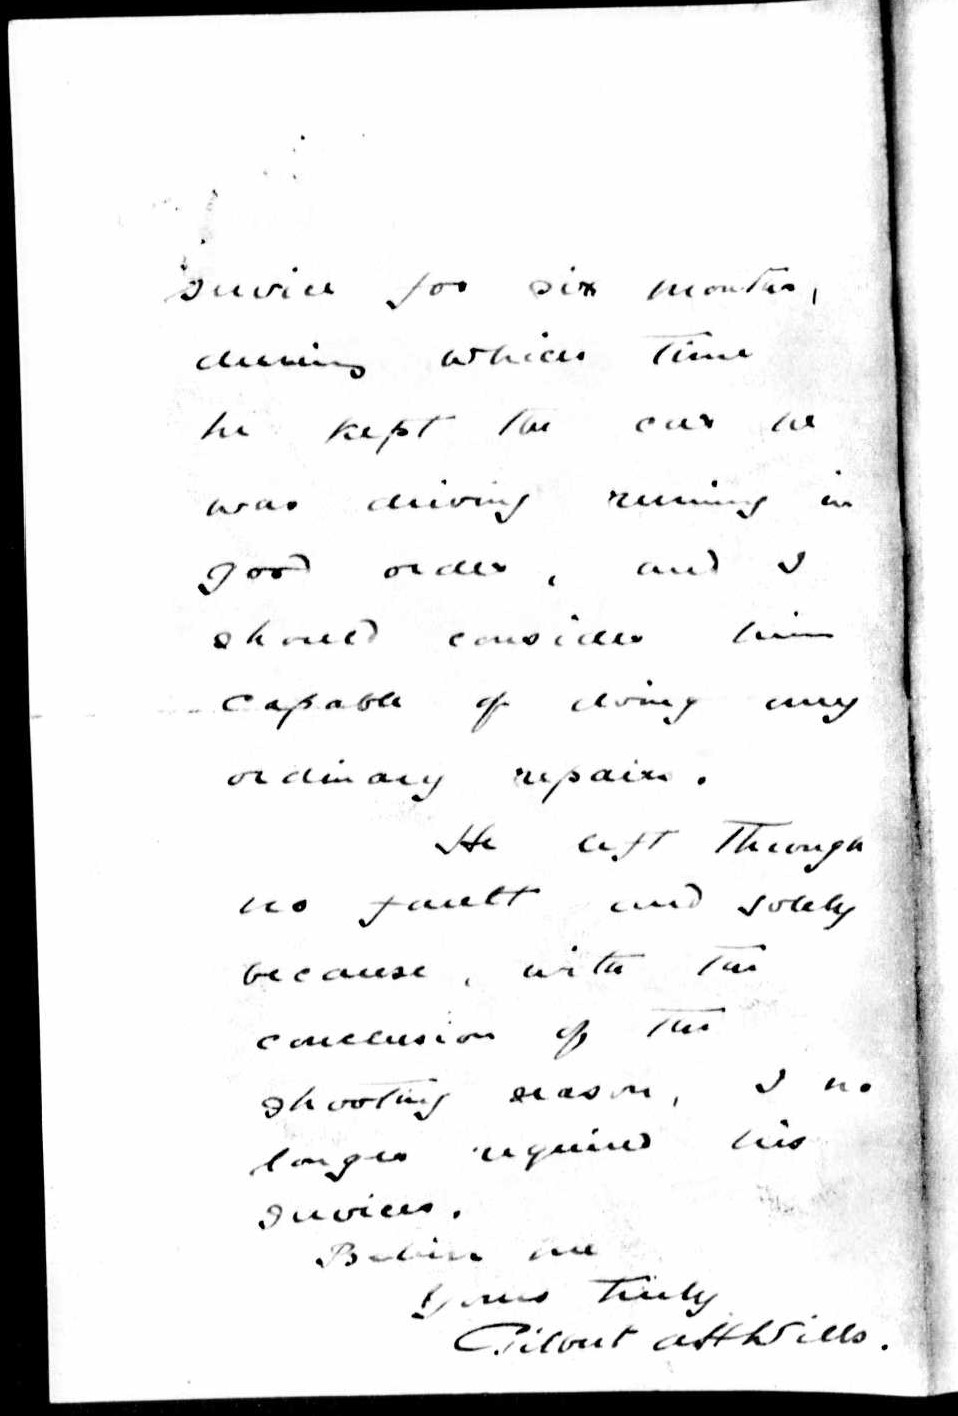 service for six months,
during which time
he kept the car he
was driving running in
good order, and I
should consider him
capable of doing any
ordinary repairs.
He left through
no fault and solely
because, with the
conclusion of the
shooting season, I no
longer required his
services.
Believe me
Yours truly
Gilbert A H Wills.